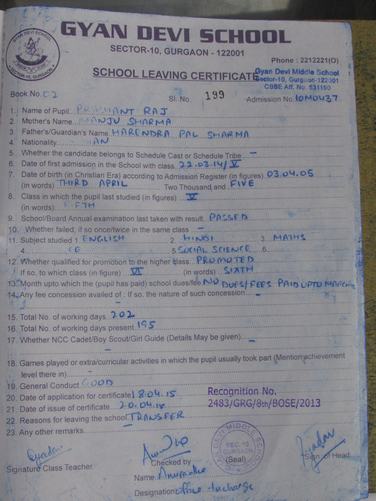 GYAN DEVI SCHOOL
SECTOR-10, GURGAON - 122001
Phone : 2212221(O)
SCHOOL LEAVING CERTIFICATE
Gyan Devi Middle School
Sector-10, Gurgaon-122001
CBSE Aff. No. 531150
Book No. 02 Sl. No. 199 Admission No. 10M0437
1. Name of Pupil PRASHANT RAJ
2. Mother's Name MANJU SHARMA
3. Father's/Guardian's Name HARENDRA PAL SHARMA
4. Nationality
5. Whether the candidate belongs to Schedule Cast or Schedule Tribe -
6. Date of first admission in the School with class 22.03.14/V
7. Date of birth (in Christian Era) according to Admission Register (in figures) 03.04.05
(in words) THIRD APRIL Two Thousand, and FIVE
8. Class in which the pupil last studied (in figures) V
(in words) FIFTH
9. School/Board Annual examination last taken with result. PASSED
10. Whether failed, if so once/twice in the same class -
11. Subject studied 1. ENGLISH 2. HINDI 3. MATHS
4. 5. SOCIAL SCIENCE 6.
12. Whether qualified for promotion to the higher class PROMOTED
If so, to which class (in figure) VI (in words) SIXTH
13. Month upto which the (pupil has paid) school dues/fee NO DUES/FEES PAID UPTO MARCH
14. Any fee concession availed of : If so, the nature of such concession -
15. Total No. of working days 202
16. Total No. of working days present 195
17. Whether NCC Cadet/Boy Scout/Girl Guide (Details May be given) -
18. Games played or extra/curricular activities in which the pupil usually took part (Mention achievement
level there in) -
19. General Conduct GOOD
20. Date of application for certificate 18.04.15
21. Date of issue of certificate 20.04.15
22. Reasons for leaving the school TRANSFER
23. Any other remarks.
Recognition No.
2483/GRG/8th/BOSE/2013
Signature Class Teacher
Checked by
(Seal)
Sign. of Head
Name
Designation Office Incharge